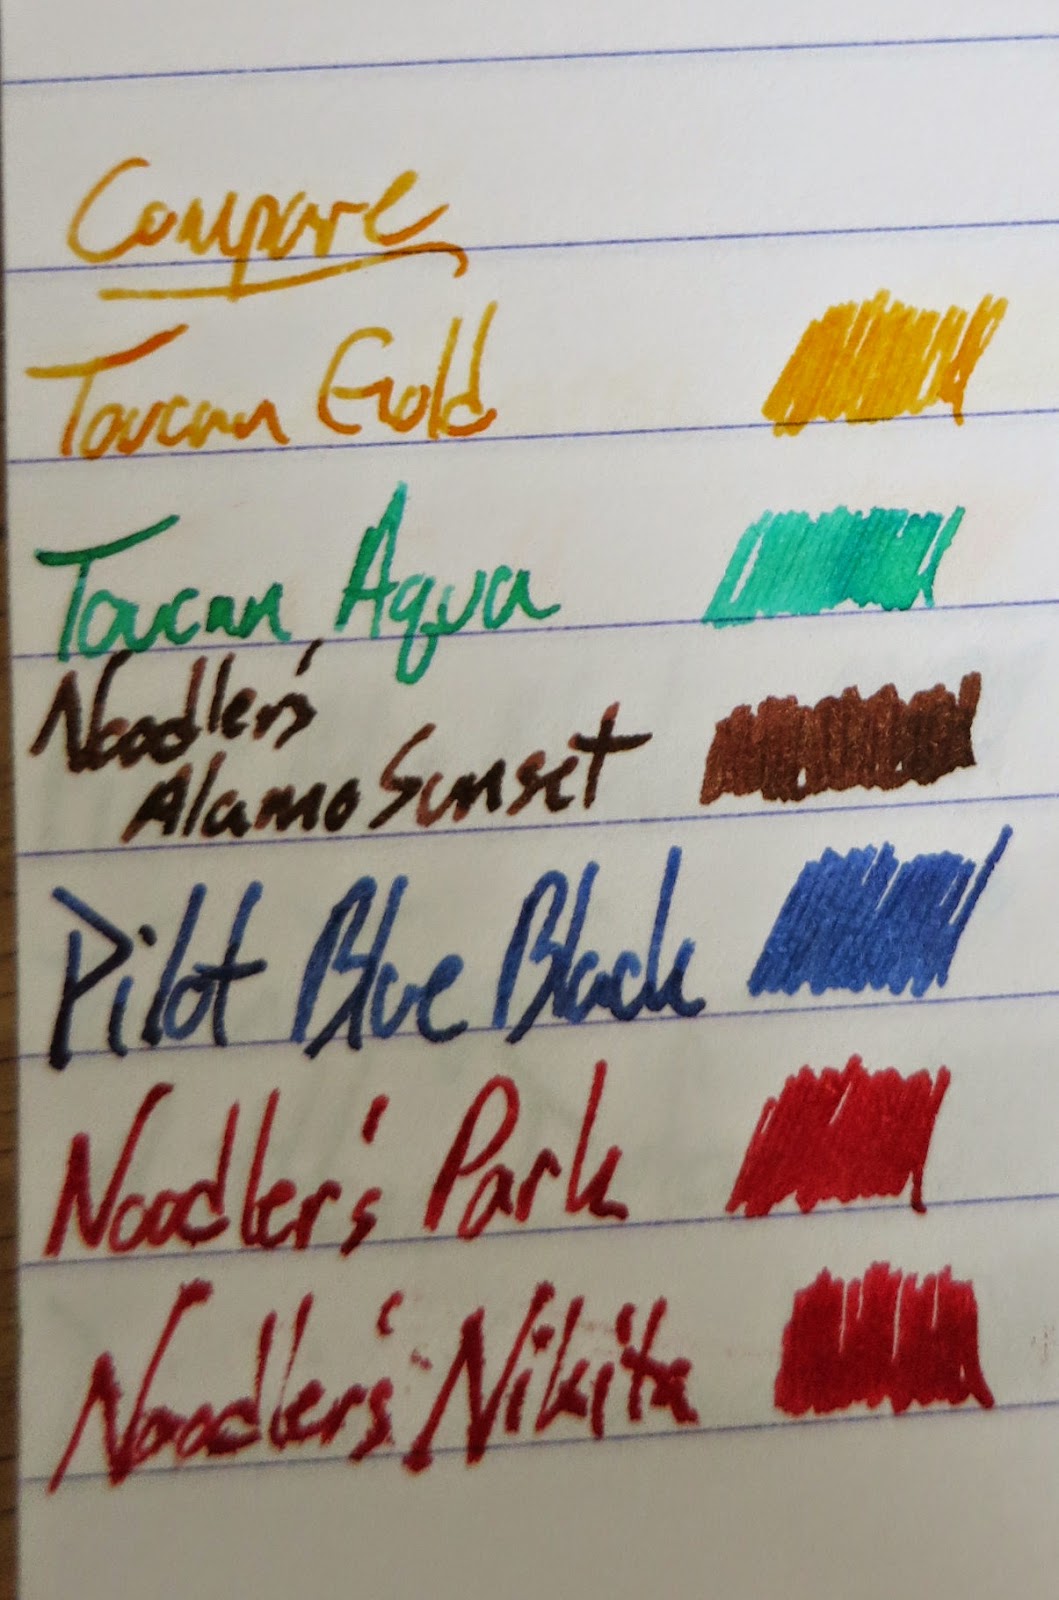 Compare
Toucan Gold
Toucan Aqua
Noodler's
Alamo Sunset
Pilot Blue Black
Noodler's Park
Noodler's Nikita